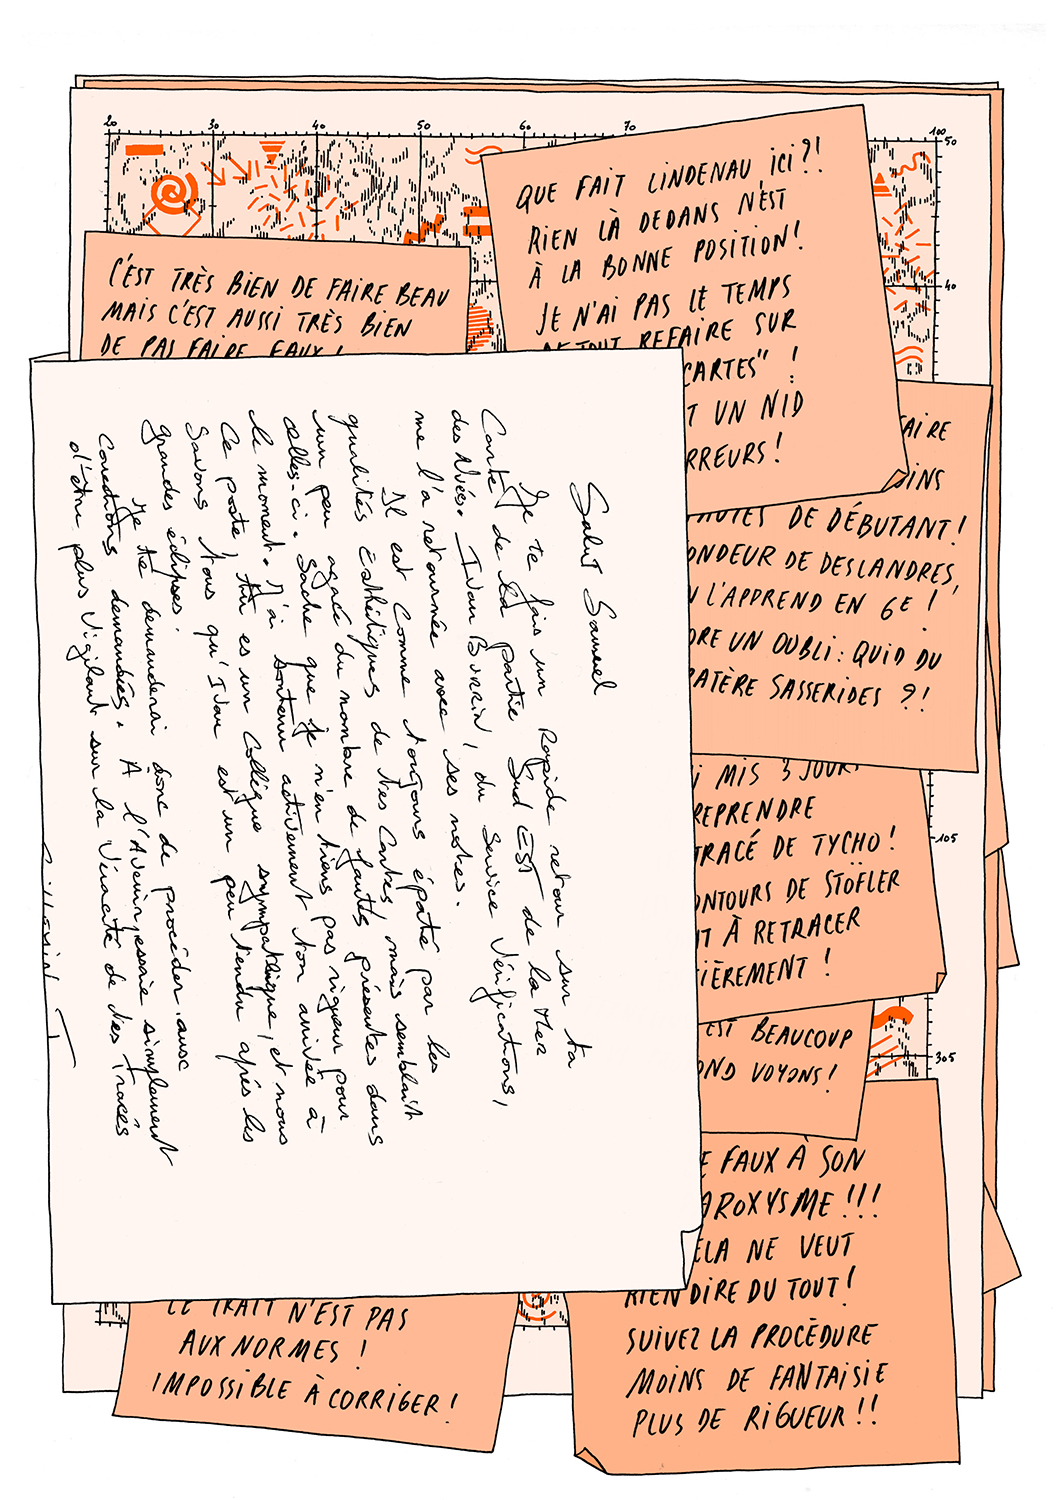 20 30 40 50 60 70 100
50
40
105
305
C'EST TRÈS BIEN DE FAIRE BEAU
MAIS C'EST AUSSI TRÈS BIEN
DE PAS FAIRE FAUX !
QUE FAIT LINDENAU ICI ?!
RIEN LÀ DEDANS N'EST
À LA BONNE POSITION !
JE N'AI PAS LE TEMPS
TOUT REFAIRE SUR
CARTES" !
T UN NID
RREURS !
AIRE
OINS
FAUTES DE DÉBUTANT !
ONDEUR DE DESLANDRES,
N L'APPREND EN 6E !
DRE UN OUBLI : QUID DU
RATÈRE SASSERIDES ?!
I MIS 3 JOURS
REPRENDRE
TRACÉ DE TYCHO !
ONTOURS DE STÖFLER
IT À RETRACER
IÈREMENT !
EST BEAUCOUP
OND VOYONS !
E FAUX À SON
AROXYSME !!!
ELA NE VEUT
RIEN DIRE DU TOUT !
SUIVEZ LA PROCÉDURE
MOINS DE FANTAISIE
PLUS DE RIGUEUR !!
LE TRAIT N'EST PAS
AUX NORMES !
IMPOSSIBLE À CORRIGER !
Salut Samuel
Je te fais un rapide retour sur ta
Carte de la partie Sud EST de la Mer
des Nuées. Ivan Burin, du Service Vérifications,
me l'a retournée avec ses notes.
Il est comme toujours épaté par les
qualités Esthétiques de tes Cartes mais semblait
un peu agacé du nombre de fautes présentes dans
celles-ci. Sache que je n'en tiens pas rigueur pour
le moment. J'ai soutenu activement ton arrivée à
Ce poste, tu es un Collègue sympathique, et nous
Savons tous qu'Ivan est un peu tendu après les
grandes éclipses.
Je te demanderai donc de procéder aux
Corrections demandées. À l'Avenir, essaie simplement
d'être plus Vigilant sur la Véracité de tes Tracés